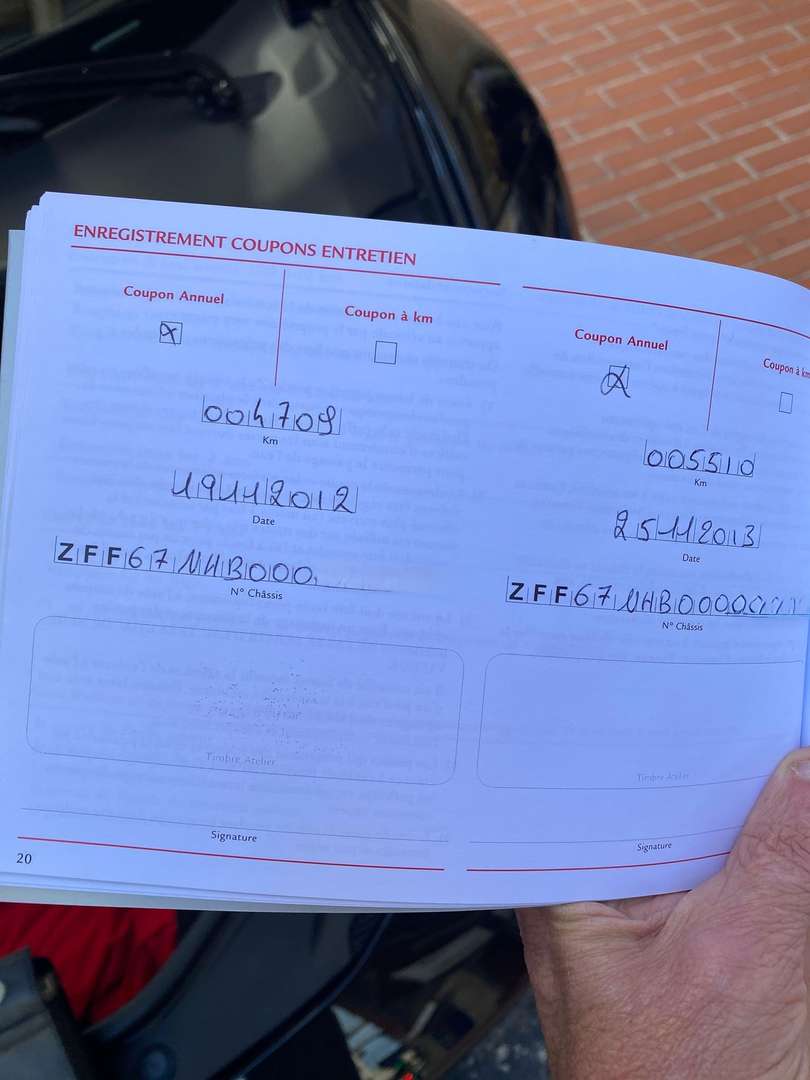 ENREGISTREMENT COUPONS ENTRETIEN
Coupon Annuel
Coupon à km
X
004709
Km
19112012
Date
ZFF67NHB000
N° Châssis
Timbre Atelier
Signature
20
Coupon Annuel
Coupon à km
X
005510
Km
25112013
Date
ZFF67NHB0000
N° Châssis
Timbre Atelier
Signature